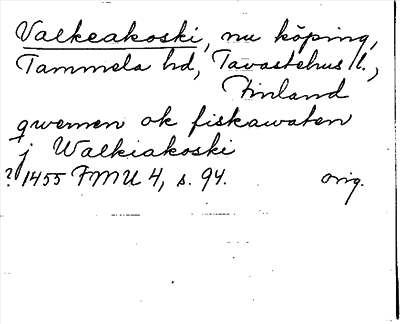 Valkeakoski, nu köping,
Tammela hd, Tavastehus l.,
Finland
qwernen ok fiskawaten
j Walkiakoski
? 1455 FMU 4, s. 94. orig.